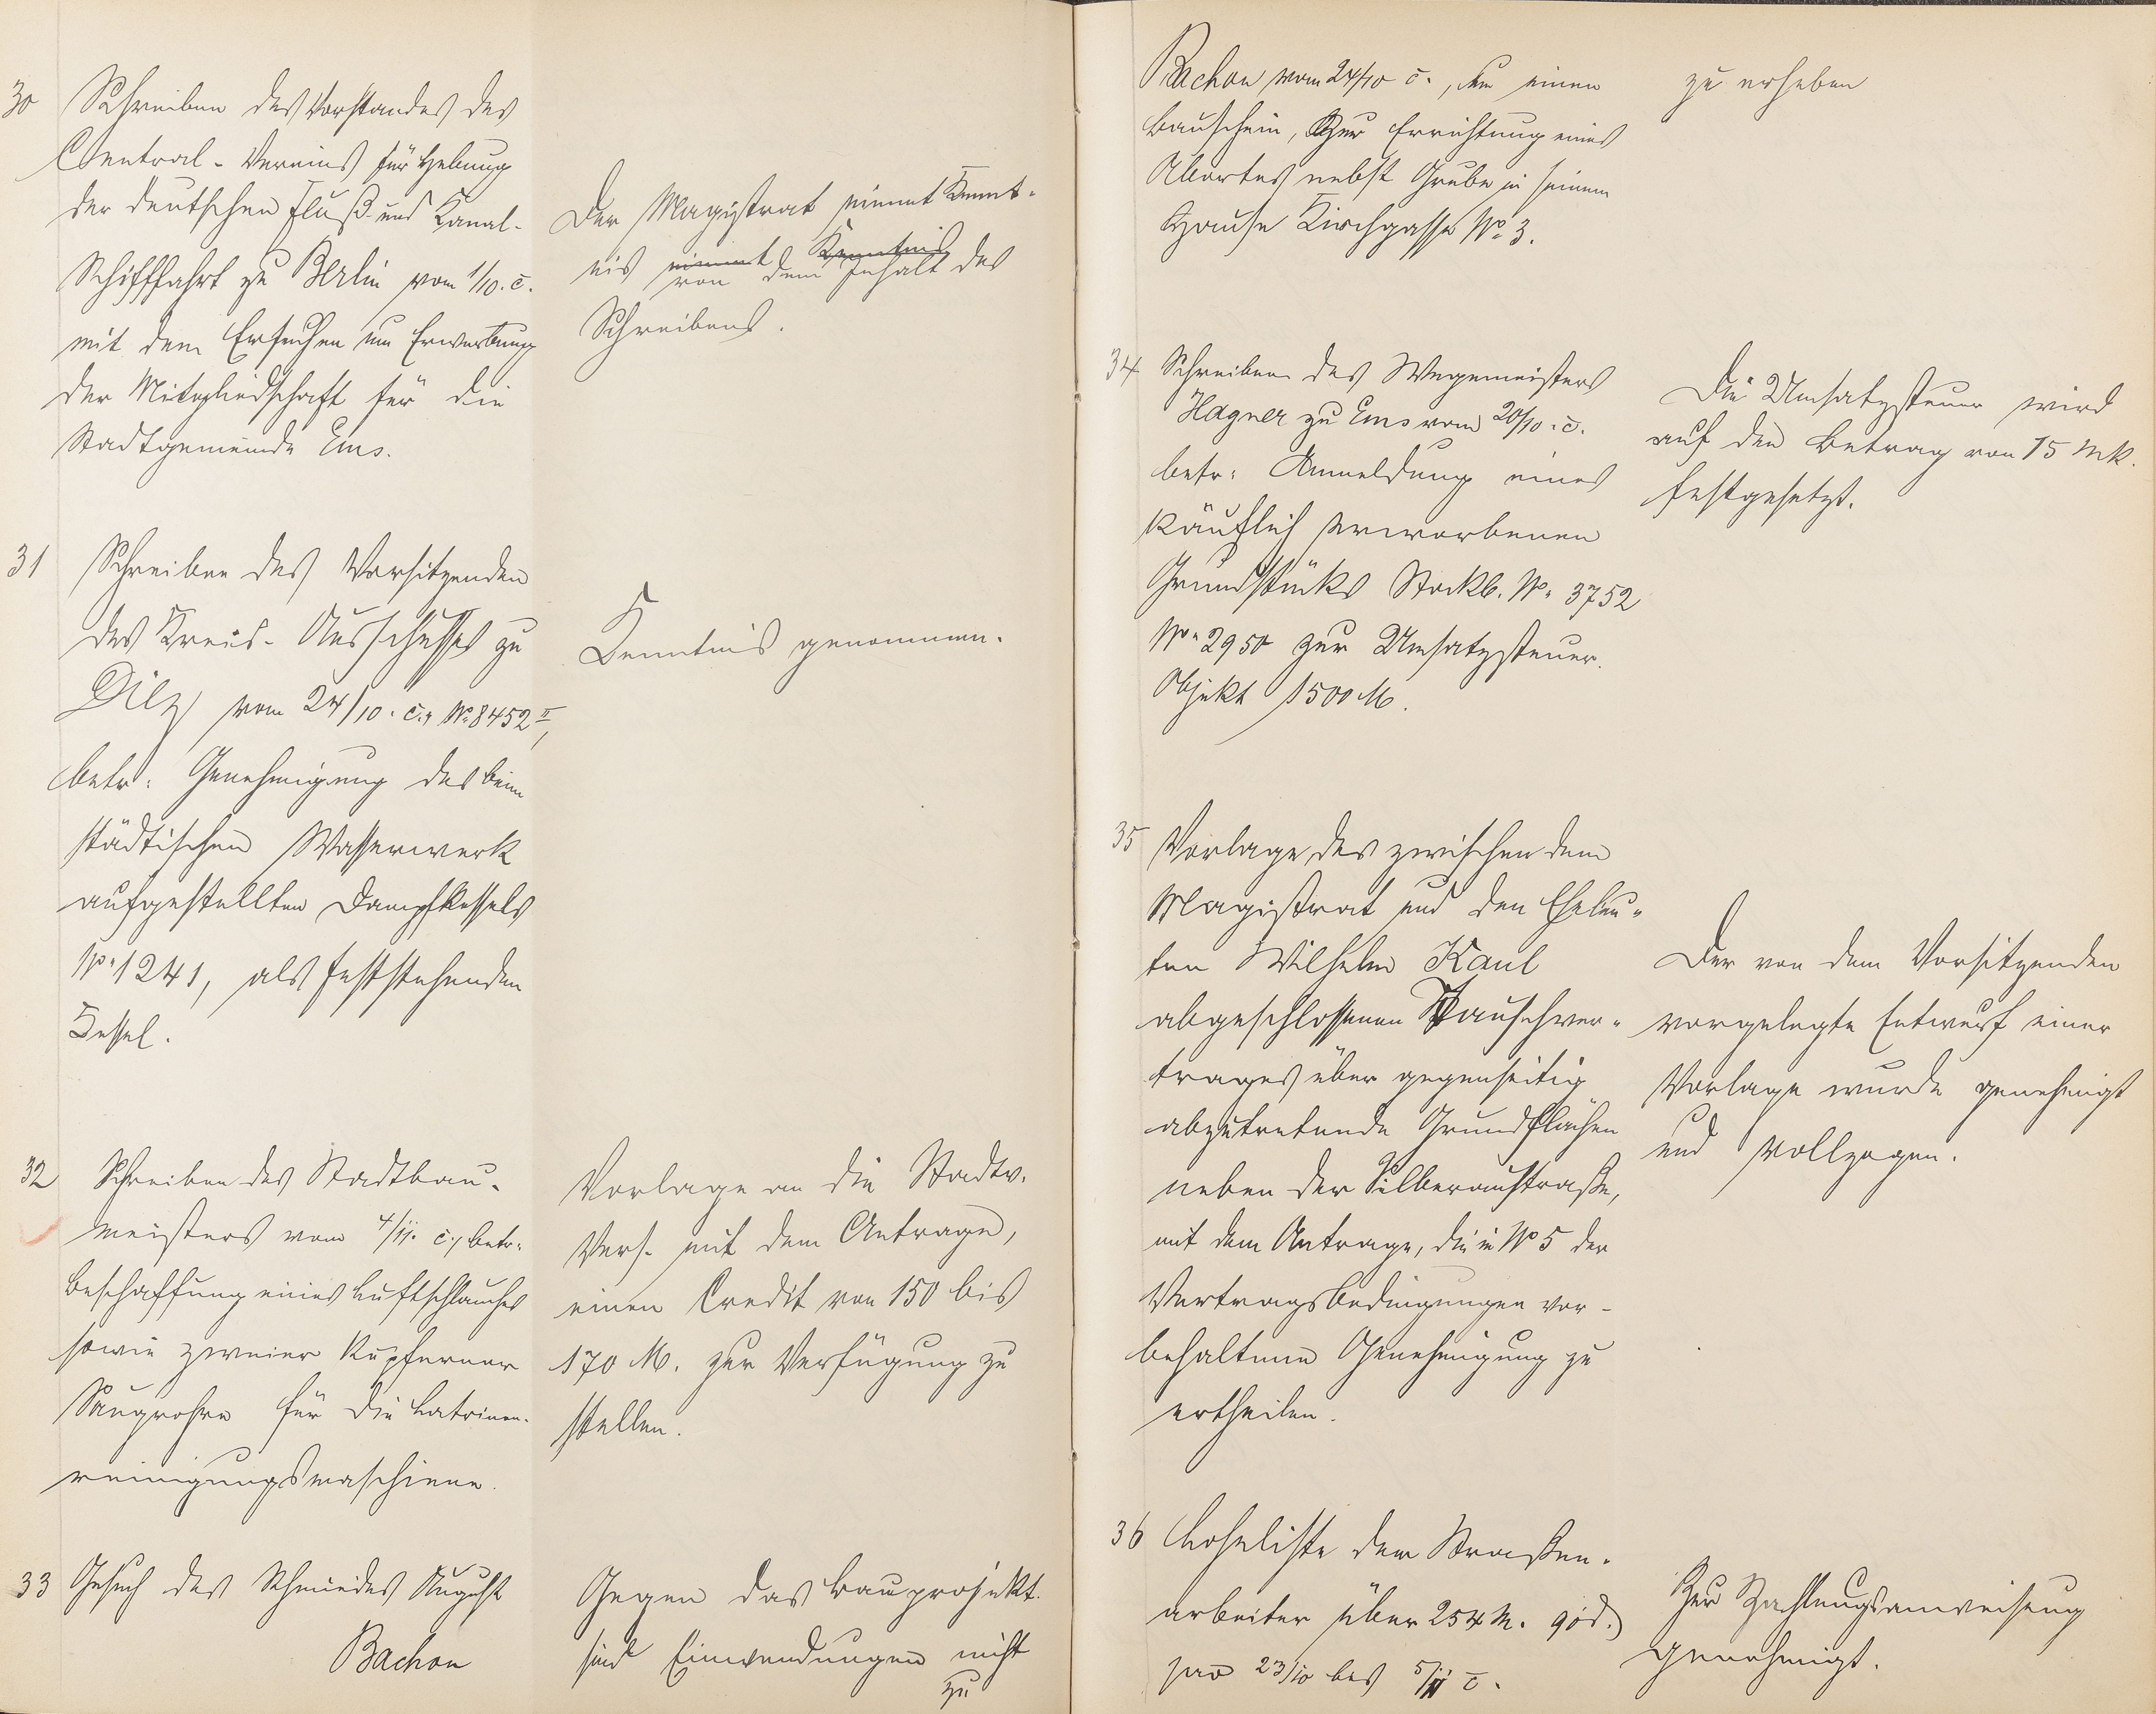 30 Schreiben des Vorstandes des
Central-Vereins für Hebung
der deutschen Fluß- und Kanal-
Schifffahrt zu Berlin vom 1/10. c.
mit dem Ersuchen um Erwerbung
der Mitgliedschaft für die
Stadtgemeinde Ems.
Der Magistrat nimmt Kennt-
nis nimmt Kenntnis
von dem Inhalt des
Schreibens.
31 Schreiben des Vorsitzenden
des Kreis-Ausschusses zu
Diez vom 24/10. c., No. 8452 II,
betr: Genehmigung des beim
städtischen Wasserwerk
aufgestellten Dampfkessels
No. 1241, als feststehenden
Kessel.
Kenntnis genommen.
32 Schreiben des Stadtbau-
meisters vom 4/11. c., betr:
Beschaffung eines Luftschlauches
sowie zweier kupferner
Saugrohre für die Latrinen-
reinigungsmaschiene.
Vorlage an die Stadtv.
Vers. mit dem Antrage,
einen Credit von 150 bis
170 M. zur Verfügung zu
stellen.
33 Gesuch des Schmiedes August
Bachon
Gegen das Bauprojekt
sind Einwendungen nicht
zu
Bachon vom 24/10 c., um einen
Bauschein, zur Errichtung eines
Abortes nebst Grube in seinem
Hause Kirchgasse No. 3.
zu erheben
34 Schreiben des Wegemeisters
Hagner zu Ems vom 20/10. c.
betr: Anmeldung eines
käuflich erworbenen
Grundstücks Stockb. No. 3752
No. 2950 zur Umsatzsteuer.
Objekt 1500 M.
Die Umsatzsteuer wird
auf den Betrag von 15 Mk.
festgesetzt.
35 Vorlage des zwischen dem
Magistrat und den Eheleu-
ten Wilhelm Kaul
abgeschlossenen Tauschver-
trages über gegenseitig
abzutretende Grundflächen
neben der Silberaustraße,
mit dem Antrage, die in No 5 der
Vertragsbedingungen vor-
behaltene Genehmigung zu
ertheilen.
Der von dem Vorsitzenden
vorgelegte Entwurf einer
Vorlage wurde genehmigt
und vollzogen.
36 Lohnliste der Straßen-
arbeiter über 254 M. 90 d.
pro 23/10 bis 5/11 c.
Zur Zahlungsanweisung
genehmigt.